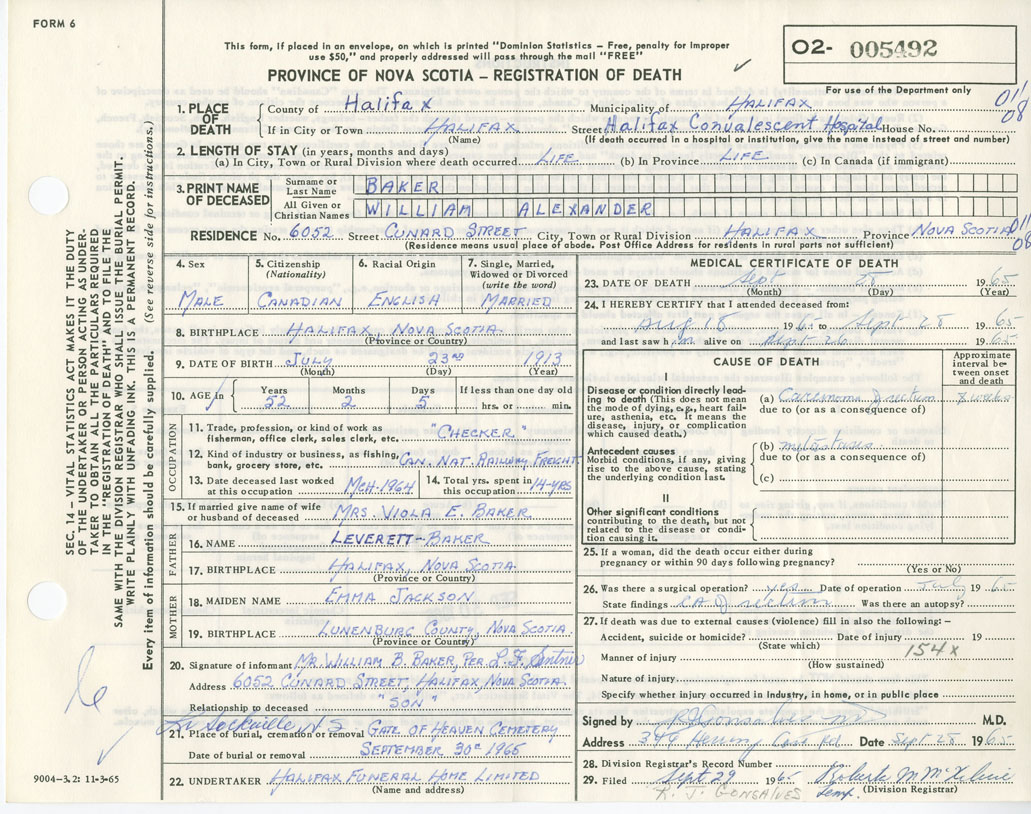 FORM 6
This form, if placed in an envelope, on which is printed "Dominion Statistics – Free, penalty for improper
use $50," and properly addressed will pass through the mail "FREE"
O2- 005492
PROVINCE OF NOVA SCOTIA – REGISTRATION OF DEATH
For use of the Department only
011
08
1. PLACE OF DEATH County of Halifax Municipality of HALIFAX
If in City or Town HALIFAX (Name) Street Halifax Convalescent Hospital House No.
(If death occurred in a hospital or institution, give the name instead of street and number)
2. LENGTH OF STAY (in years, months and days)
(a) In City, Town or Rural Division where death occurred LIFE (b) In Province LIFE (c) In Canada (if immigrant)
3. PRINT NAME OF DECEASED
Surname or Last Name BAKER
All Given or Christian Names WILLIAM ALEXANDER
RESIDENCE No. 6052 Street CUNARD STREET City, Town or Rural Division HALIFAX Province NOVA SCOTIA
(Residence means usual place of abode. Post Office Address for residents in rural parts not sufficient)
011
08
4. Sex MALE
5. Citizenship (Nationality) CANADIAN
6. Racial Origin ENGLISH
7. Single, Married, Widowed or Divorced (write the word) MARRIED
8. BIRTHPLACE HALIFAX, NOVA SCOTIA.
(Province or Country)
9. DATE OF BIRTH JULY 23RD 1913
(Month) (Day) (Year)
10. AGE in Years 52 Months 2 Days 5 If less than one day old hrs. or min.
OCCUPATION
11. Trade, profession, or kind of work as fisherman, office clerk, sales clerk, etc. "CHECKER"
12. Kind of industry or business, as fishing, bank, grocery store, etc. CAN. NAT. RAILWAY FREIGHT
13. Date deceased last worked at this occupation MCH-1964
14. Total yrs. spent in this occupation 14-YRS
15. If married give name of wife or husband of deceased MRS. VIOLA E. BAKER
FATHER
16. NAME LEVERETT-BAKER
17. BIRTHPLACE HALIFAX, NOVA SCOTIA
(Province or Country)
MOTHER
18. MAIDEN NAME EMMA JACKSON
19. BIRTHPLACE LUNENBURG COUNTY, NOVA SCOTIA.
(Province or Country)
20. Signature of informant MR. WILLIAM B. BAKER, PER L. F.
Address 6052 CUNARD STREET, HALIFAX, NOVA SCOTIA.
Relationship to deceased "SON"
Sackville N.S
21. Place of burial, cremation or removal GATE OF HEAVEN CEMETERY
Date of burial or removal SEPTEMBER 30th 1965
22. UNDERTAKER HALIFAX FUNERAL HOME LIMITED
(Name and address)
MEDICAL CERTIFICATE OF DEATH
23. DATE OF DEATH Sept 28 1965
(Month) (Day) (Year)
24. I HEREBY CERTIFY that I attended deceased from:
Aug 18 1965 to Sept 28 1965
and last saw him alive on Sept 26 1965
CAUSE OF DEATH
Approximate interval between onset and death
I
Disease or condition directly leading to death (This does not mean the mode of dying, e.g., heart failure, asthenia, etc. It means the disease, injury, or complication which caused death.)
(a) Carcinoma of rectum 8 weeks
due to (or as a consequence of)
Antecedent causes
Morbid conditions, if any, giving rise to the above cause, stating the underlying condition last.
(b) metastases
due to (or as a consequence of)
(c)
II
Other significant conditions
contributing to the death, but not related to the disease or condition causing it.
25. If a woman, did the death occur either during pregnancy or within 90 days following pregnancy?
(Yes or No)
26. Was there a surgical operation? yes Date of operation July 1965
State findings CA of rectum Was there an autopsy?
27. If death was due to external causes (violence) fill in also the following: –
Accident, suicide or homicide? Date of injury 19
(State which)
154X
Manner of injury
(How sustained)
Nature of injury
Specify whether injury occurred in industry, in home, or in public place
Signed by RJ Gonsalves M.D.
Address 344 Herring Cove Rd Date Sept 28 1965
28. Division Registrar's Record Number
29. Filed Sept 29 1965 Roberta M
R. J. GONSALVES Temp. (Division Registrar)
SEC. 14 – VITAL STATISTICS ACT MAKES IT THE DUTY
OF THE UNDERTAKER OR PERSON ACTING AS UNDER-
TAKER TO OBTAIN ALL THE PARTICULARS REQUIRED
IN THE "REGISTRATION OF DEATH" AND TO FILE THE
SAME WITH THE DIVISION REGISTRAR WHO SHALL ISSUE THE BURIAL PERMIT.
WRITE PLAINLY WITH UNFADING INK. THIS IS A PERMANENT RECORD.
Every item of information should be carefully supplied. (See reverse side for instructions.)
9004-3.2: 11-3-65